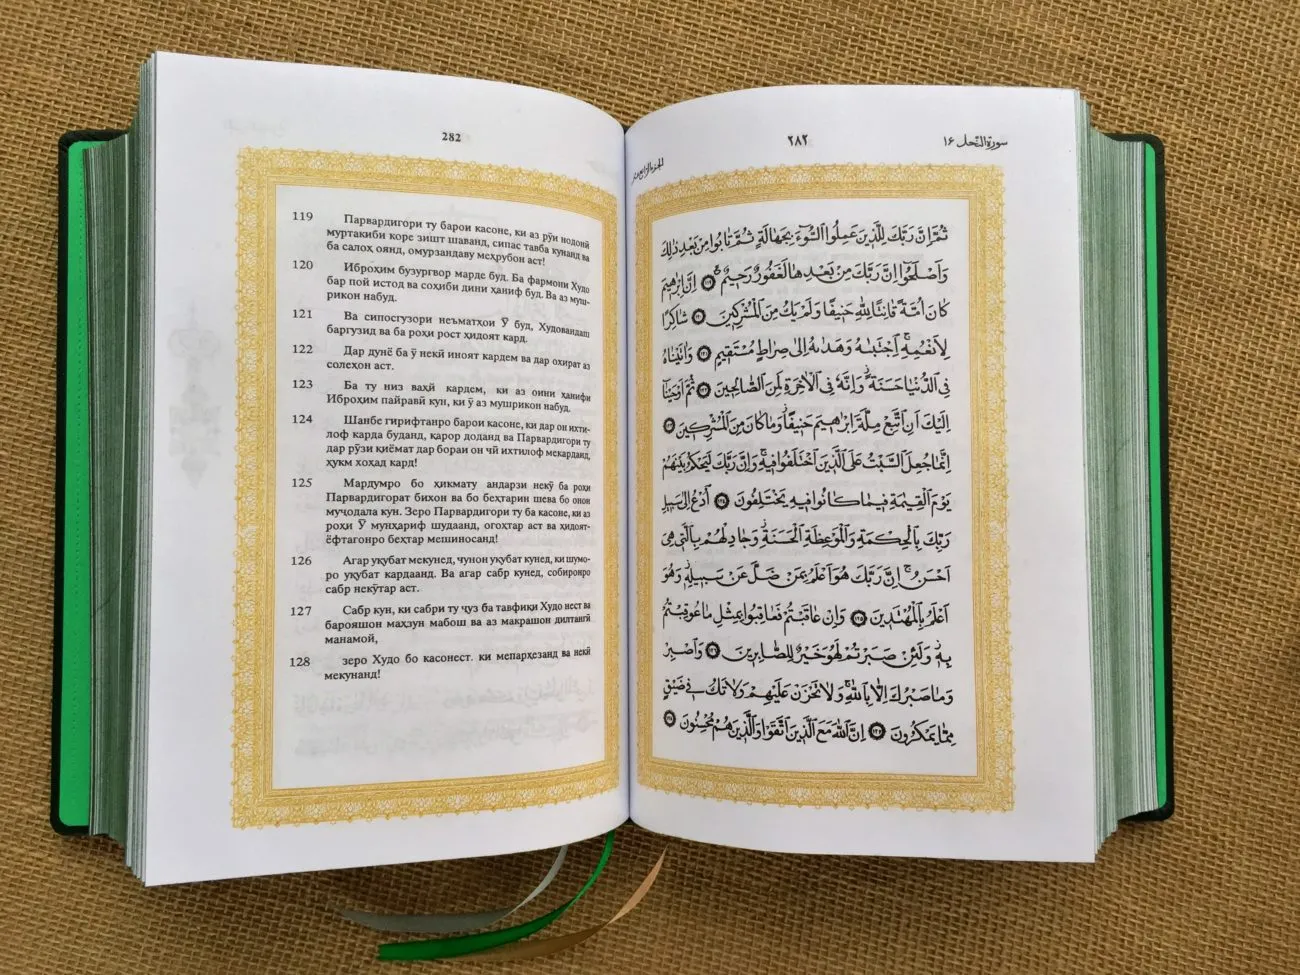 282
119 Парвардигори ту барои касоне, ки аз рӯи нодонӣ
муртакиби коре зишт шаванд, сипас тавба кунанд ва
ба салоҳ оянд, омурзандаву меҳрубон аст!
120 Иброҳим бузургвор марде буд. Ба фармони Худо
бар пой истод ва соҳиби дини ҳаниф буд. Ва аз муш-
рикон набуд.
121 Ва сипосгузори неъматҳои Ӯ буд, Худовандаш
баргузид ва ба роҳи рост ҳидоят кард.
122 Дар дунё ба ӯ некӣ иноят кардем ва дар охират аз
солеҳон аст.
123 Ба ту низ ваҳй кардем, ки аз оини ҳанифи
Иброҳим пайравӣ кун, ки ӯ аз мушрикон набуд.
124 Шанбе гирифтанро барои касоне, ки дар он ихти-
лоф карда буданд, қарор доданд ва Парвардигори ту
дар рӯзи қиёмат дар бораи он чӣ ихтилоф мекарданд,
ҳукм хоҳад кард!
125 Мардумро бо ҳикмату андарзи некӯ ба роҳи
Парвардигорат бихон ва бо беҳтарин шева бо онон
муҷодала кун. Зеро Парвардигори ту ба касоне, ки аз
роҳи Ӯ мунҳариф шудаанд, огоҳтар аст ва ҳидоят-
ёфтагонро беҳтар мешиносанд!
126 Агар уқубат мекунед, чунон уқубат кунед, ки шумо-
ро уқубат кардаанд. Ва агар сабр кунед, собиронро
сабр некӯтар аст.
127 Сабр кун, ки сабри ту ҷуз ба тавфиқи Худо нест ва
барояшон маҳзун мабош ва аз макрашон дилтангӣ
манамой,
128 зеро Худо бо касонест. ки мепарҳезанд ва некӣ
мекунанд!
سورة النّحل ١۶
٢٨٢
الجزء الرّابع عشر
ثُمَّ اِنَّ رَبَّكَ لِلَّذينَ عَمِلُوا السُّوٓءَ بِجَهالَةٍ ثُمَّ تابُوا مِنْ بَعْدِ ذٰلِكَ
وَاَصْلَحُوٓا اِنَّ رَبَّكَ مِنْ بَعْدِها لَغَفُورٌ رَحيمٌ ١١٩ اِنَّ اِبْرٰهيمَ
كانَ اُمَّةً قانِتًا لِلّٰهِ حَنيفًا وَلَمْ يَكُ مِنَ الْمُشْرِكينَ ١٢٠ شاكِرًا
لِاَنْعُمِهِ اجْتَبٰىهُ وَهَدٰىهُ اِلٰى صِراطٍ مُسْتَقيمٍ ١٢١ وَاٰتَيْناهُ
فِى الدُّنْيا حَسَنَةً وَاِنَّهُ فِى الْاٰخِرَةِ لَمِنَ الصّالِحينَ ١٢٢ ثُمَّ اَوْحَيْنا
اِلَيْكَ اَنِ اتَّبِعْ مِلَّةَ اِبْرٰهيمَ حَنيفًا وَما كانَ مِنَ الْمُشْرِكينَ ١٢٣
اِنَّما جُعِلَ السَّبْتُ عَلَى الَّذينَ اخْتَلَفُوا فيهِ وَاِنَّ رَبَّكَ لَيَحْكُمُ بَيْنَهُمْ
يَوْمَ الْقِيٰمَةِ فيما كانُوا فيهِ يَخْتَلِفُونَ ١٢٤ اُدْعُ اِلٰى سَبيلِ
رَبِّكَ بِالْحِكْمَةِ وَالْمَوْعِظَةِ الْحَسَنَةِ وَجادِلْهُمْ بِالَّتى هِىَ
اَحْسَنُ اِنَّ رَبَّكَ هُوَ اَعْلَمُ بِمَنْ ضَلَّ عَنْ سَبيلِهِ وَهُوَ
اَعْلَمُ بِالْمُهْتَدينَ ١٢٥ وَاِنْ عاقَبْتُمْ فَعاقِبُوا بِمِثْلِ ما عُوقِبْتُمْ
بِهِ وَلَئِنْ صَبَرْتُمْ لَهُوَ خَيْرٌ لِلصّابِرينَ ١٢٦ وَاصْبِرْ
وَما صَبْرُكَ اِلّا بِاللّٰهِ وَلا تَحْزَنْ عَلَيْهِمْ وَلا تَكُ فى ضَيْقٍ
مِمّا يَمْكُرُونَ ١٢٧ اِنَّ اللّٰهَ مَعَ الَّذينَ اتَّقَوْا وَالَّذينَ هُمْ مُحْسِنُونَ ١٢٨